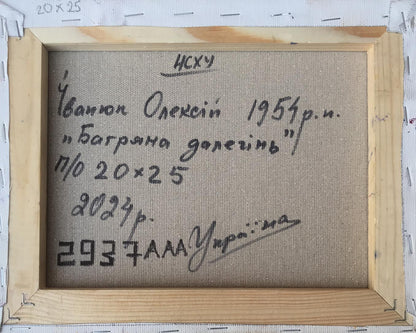 20×25
НСХУ
Іванюк Олексій 1954 р.н.
"Багряна далечінь"
п/о 20×25
2024р.
2937ААА Україна